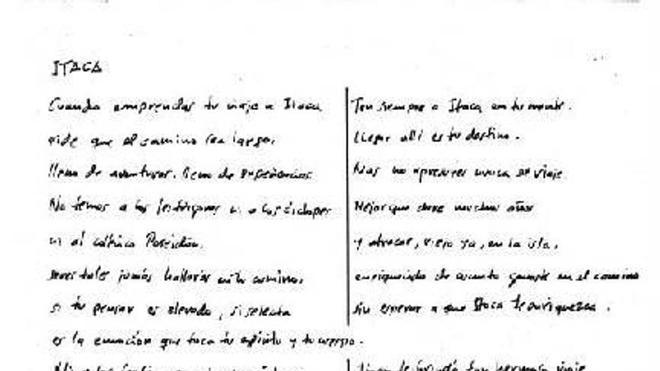 ITACA
Cuando emprendas tu viaje a Itaca
pide que el camino sea largo,
lleno de aventuras, lleno de experiencias.
No temas a los lestrigones ni a los cíclopes
ni al colérico Poseidón,
seres tales jamás hallarás en tu camino,
si tu pensar es elevado, si selecta
es la emoción que toca tu espíritu y tu cuerpo.
Ten siempre a Itaca en tu mente.
Llegar allí es tu destino.
Mas no apresures nunca el viaje
Mejor que dure muchos años
y atracar, viejo ya, en la isla,
enriquecido de cuanto ganaste en el camino
sin esperar a que Itaca te enriquezca.
tan hermoso viaje